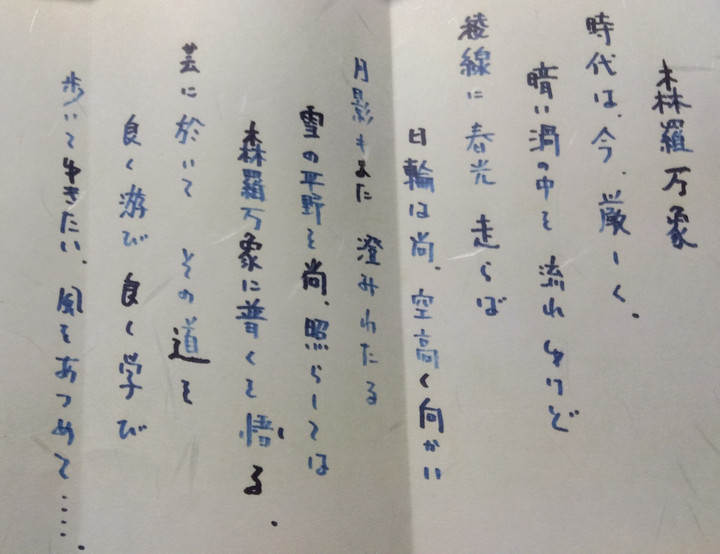 森羅万象
時代は、今、厳しく、
暗い渦の中を 流れゆけど
稜線に春光 走らば
日輪は尚、空高く向かい
月影もまた 澄みわたる
雪の平野を尚、照らしては
森羅万象に普くを悟る。
芸に於いて その道を
良く遊び 良く学び
歩いてゆきたい、風をあつめて‥‥。